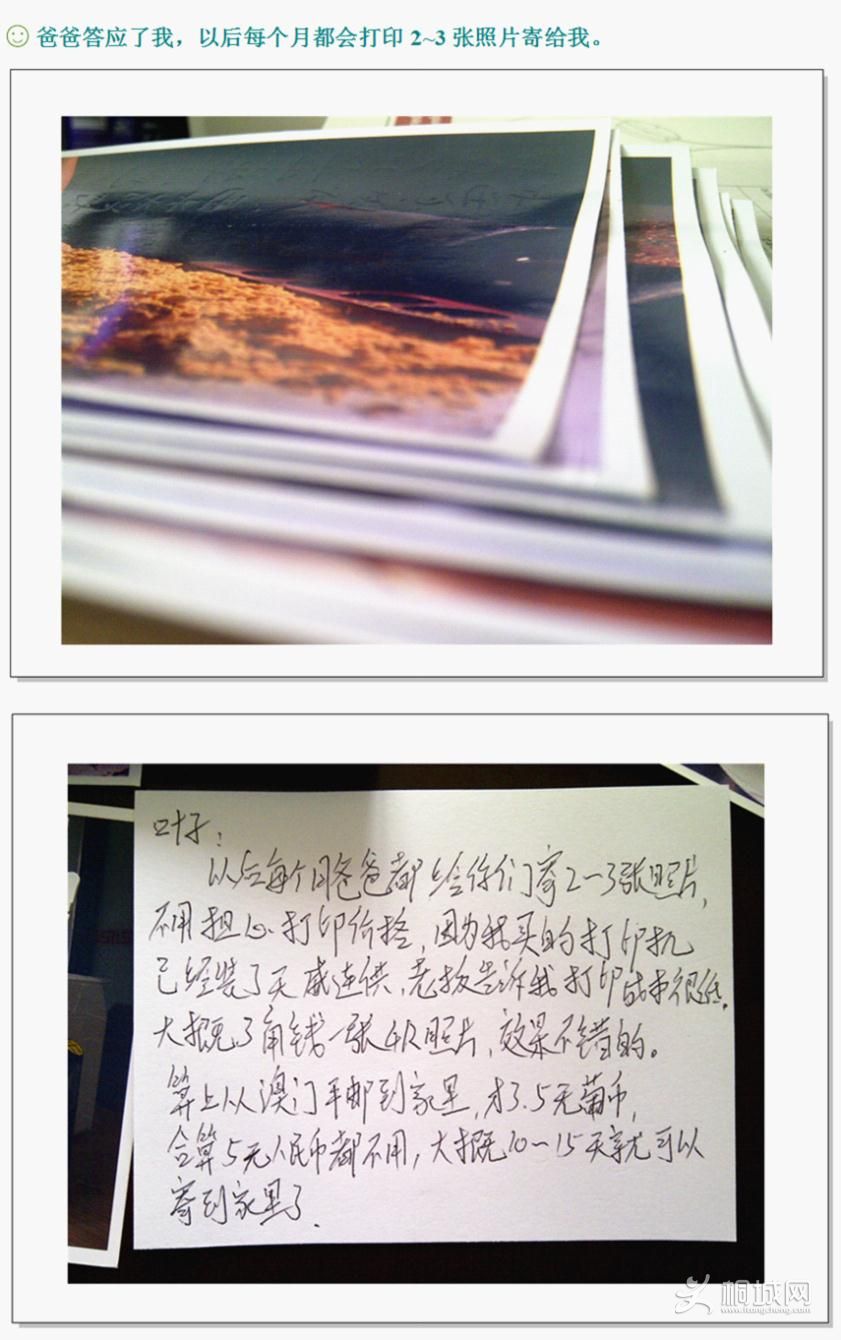 爸爸答应了我，以后每个月都会打印 2~3 张照片寄给我。
叶子：
以后每个月爸爸都给你们寄2-3张照片，
不用担心打印价格，因为我买的打印机
已经装了天威连供，老板告诉我打印成本很低，
大概3角钱一张4R照片，效果不错的。
算上从澳门平邮到家里，才3.5元葡币，
合算5元人民币都不用，大概10-15天就可以
寄到家里了.
桐城网
www.itongcheng.com